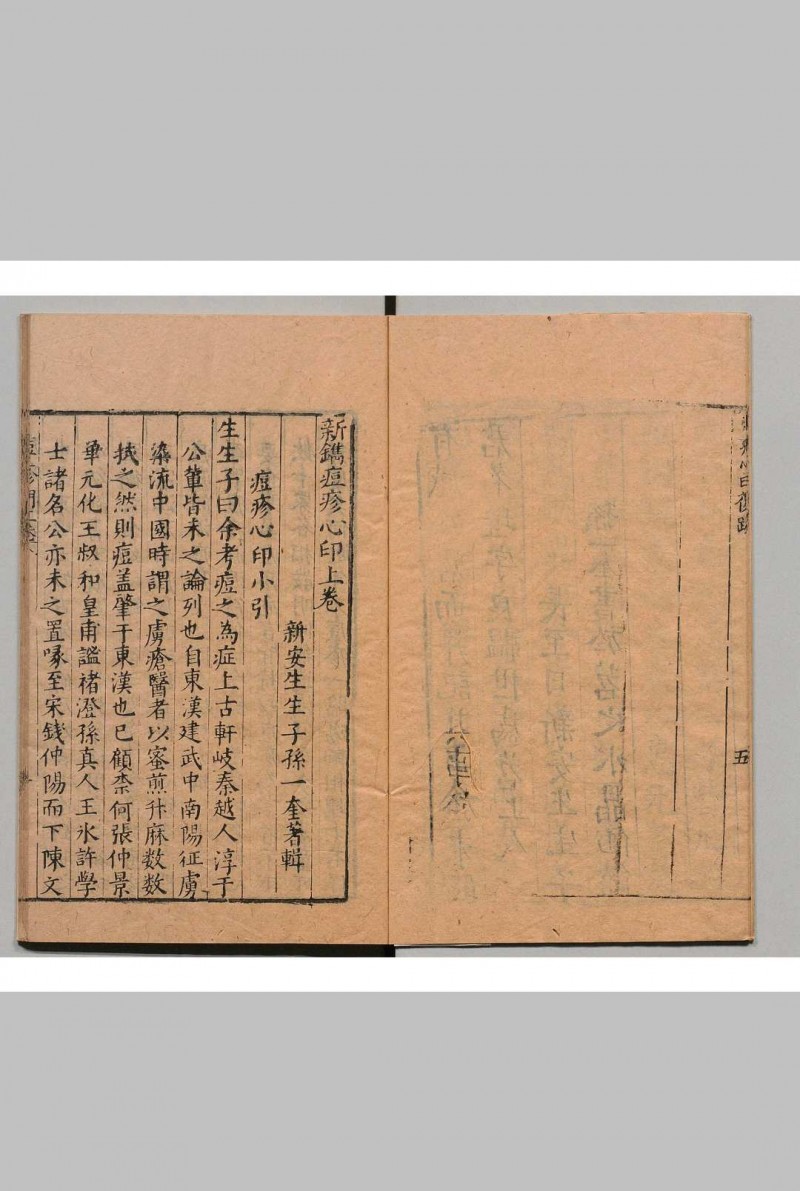 五
新鐫痘疹心印上卷
新安生生子孫一奎著輯
痘疹心印小引
生生子曰余考痘之為症上古軒岐秦越人淳于
公輩皆未之論列也自東漢建武中南陽征虜
染流中國時謂之虜瘡醫者以蜜煎升麻数数
拭之然則痘盖肇于東漢也已顧柰何張仲景
華元化王叔和皇甫謐褚澄孫真人王氷許學
士諸名公亦未之置喙至宋錢仲陽而下陳文